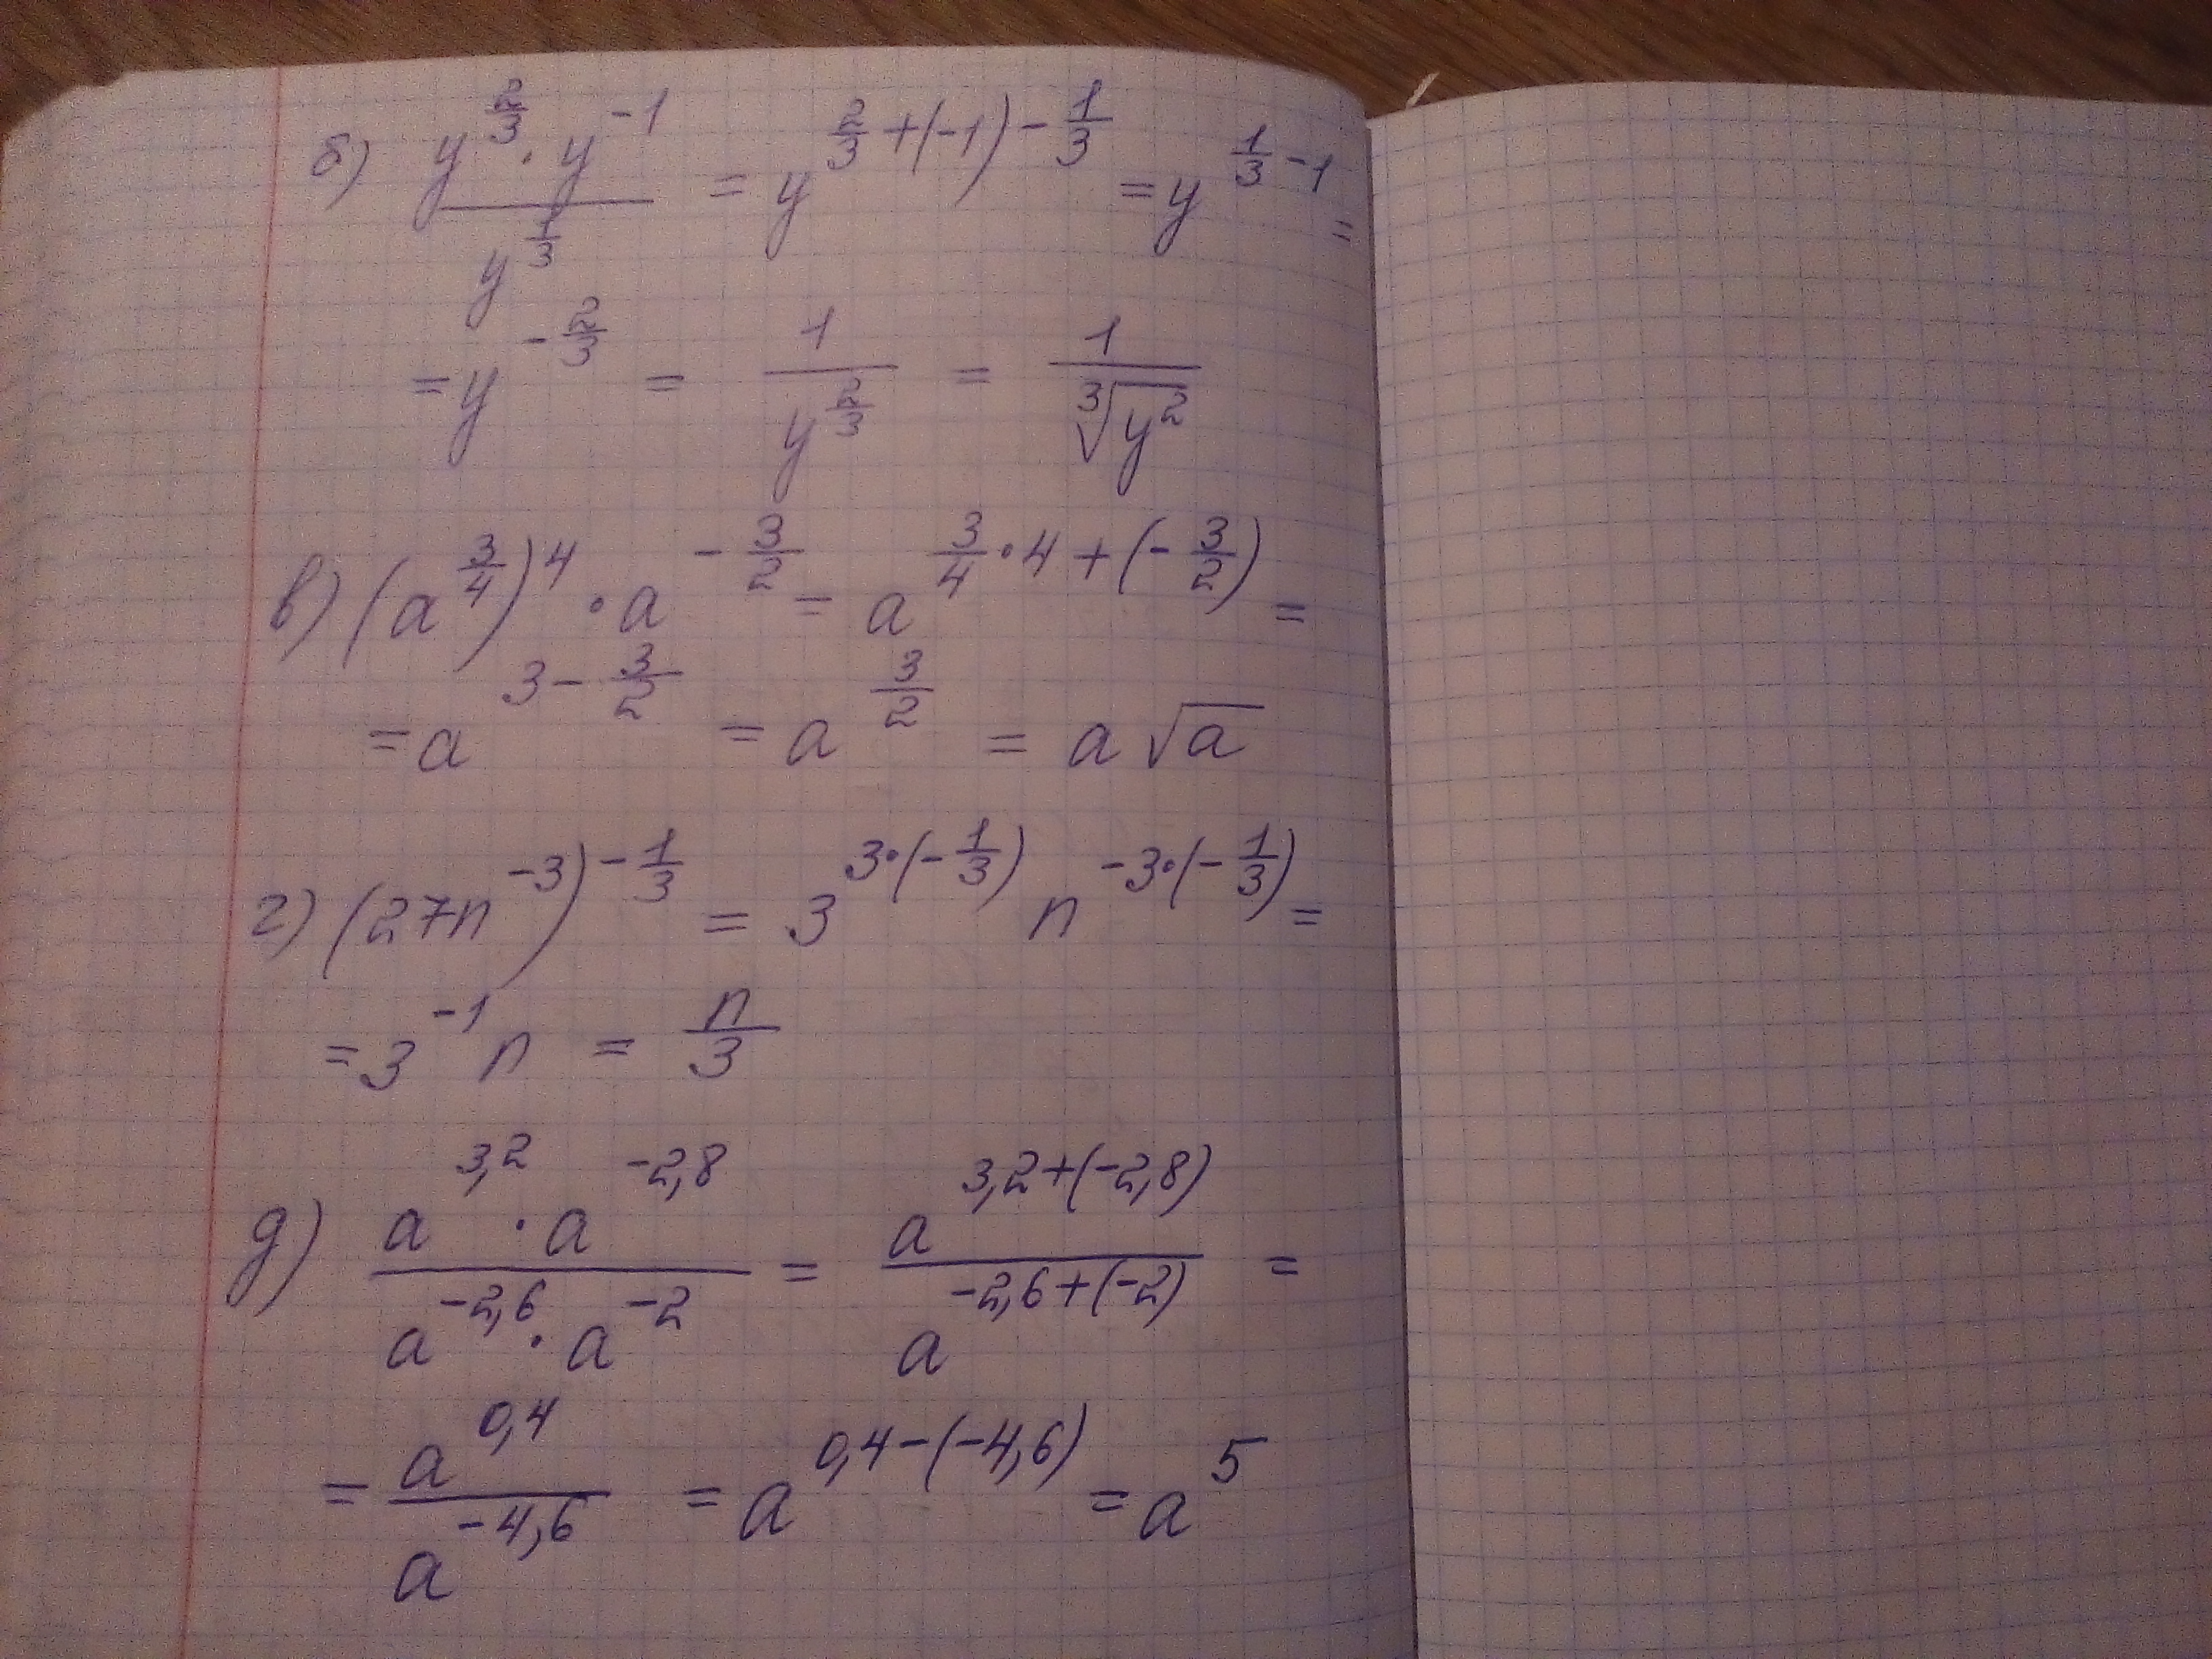 б) (y^(2/3) · y^(-1)) / y^(1/3) = y^(2/3 + (-1) - 1/3) = y^(1/3 - 1) =
= y^(-2/3) = 1 / y^(2/3) = 1 / ∛(y^2)
в) (a^(3/4))^4 · a^(-3/2) = a^(3/4 · 4 + (-3/2)) =
= a^(3 - 3/2) = a^(3/2) = a √a
г) (27n^(-3))^(-1/3) = 3^(3·(-1/3)) n^(-3·(-1/3)) =
= 3^(-1) n = n/3
д) (a^(3,2) · a^(-2,8)) / (a^(-2,6) · a^(-2)) = a^(3,2+(-2,8)) / a^(-2,6+(-2)) =
= a^(0,4) / a^(-4,6) = a^(0,4-(-4,6)) = a^5